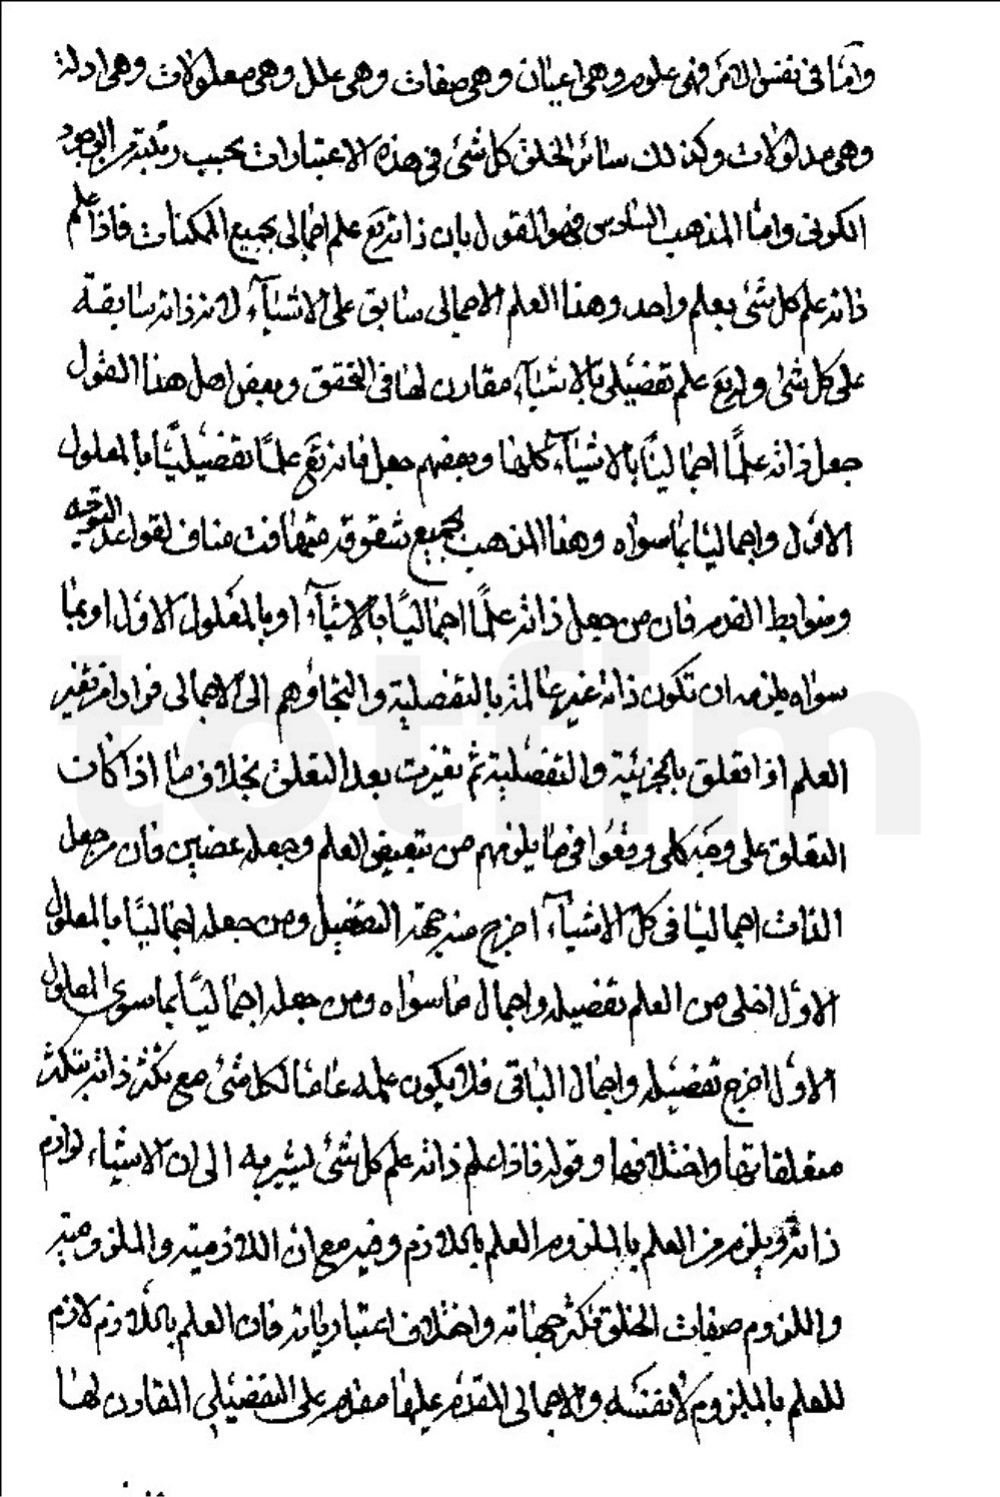 وأما في نفس الأمر فهي علوم وهي أعيان وهي صفات وهي علل وهي معلولات وهي ادلة
وهي مدلولات وكذلك سائر الخلق كل شئ في هذه الاعتبارات بحسب رتبته من الوجود
الكوني واما المذهب السادس فهو القول بان ذاته تع علم اجمالي بجميع الممكنات فاذا علم
ذاته علم كل شئ بعلم واحد وهذا العلم الاجمالي سابق على الاشياء لان ذاته سابقة
على كل شئ وله تع علم تفصيلي بالاشياء مقارن لها في التحقق وبعض اهل هذا القول
جعل ذاته علمًا اجماليًا بالاشياء كلها وبعضهم جعل ذاته تع علمًا تفصيليًا بالمعلول
الاول واجماليا بما سواه وهذا المذهب بجميع شقوقه متهافت مناف لقواعد التوحيد
وضوابط القدم فان من جعل ذاته علمًا اجماليًا بالاشياء او بالمعلول الاول او بما
سواه يلزمه ان تكون ذاته غير عالمة بالتفصيلية والتجاؤهم الى الاجمالي فرارا من تغير
العلم اذا تعلق بالجزئية والتفصيلية ثم تغيرت بعد التعلق بخلاف ما اذا كان
التعلق على وجه كلي وقعوا فيما يلزمهم من تبعيض العلم وجعله عضين فان من جعل
الذات اجماليا في كل الاشياء اخرج منه جهة التفصيل ومن جعله اجماليًا بالمعلول
الاول اخلى من العلم تفصيله واجمال ما سواه ومن جعله اجماليًا بما سوى المعلول
الاول اخرج تفصيله واجمال الباقي فلا يكون علمه عاما لكل شئ مع تكثر ذاته بتكثر
متعلقاتها واختلافها وقوله فاذا علم ذاته علم كل شئ يشير به الى ان الاشياء لوازم
ذاته ويلزم من العلم بالملزوم العلم باللازم وفيه مع ان اللازمية والملزومية
واللزوم صفات الخلق تكثر جهاته واختلاف اعتبارياته فان العلم باللازم لازم
للعلم بالملزوم لا نفسه والاجمالي المقدم عليها مقدم على التفصيلي المقارن لها